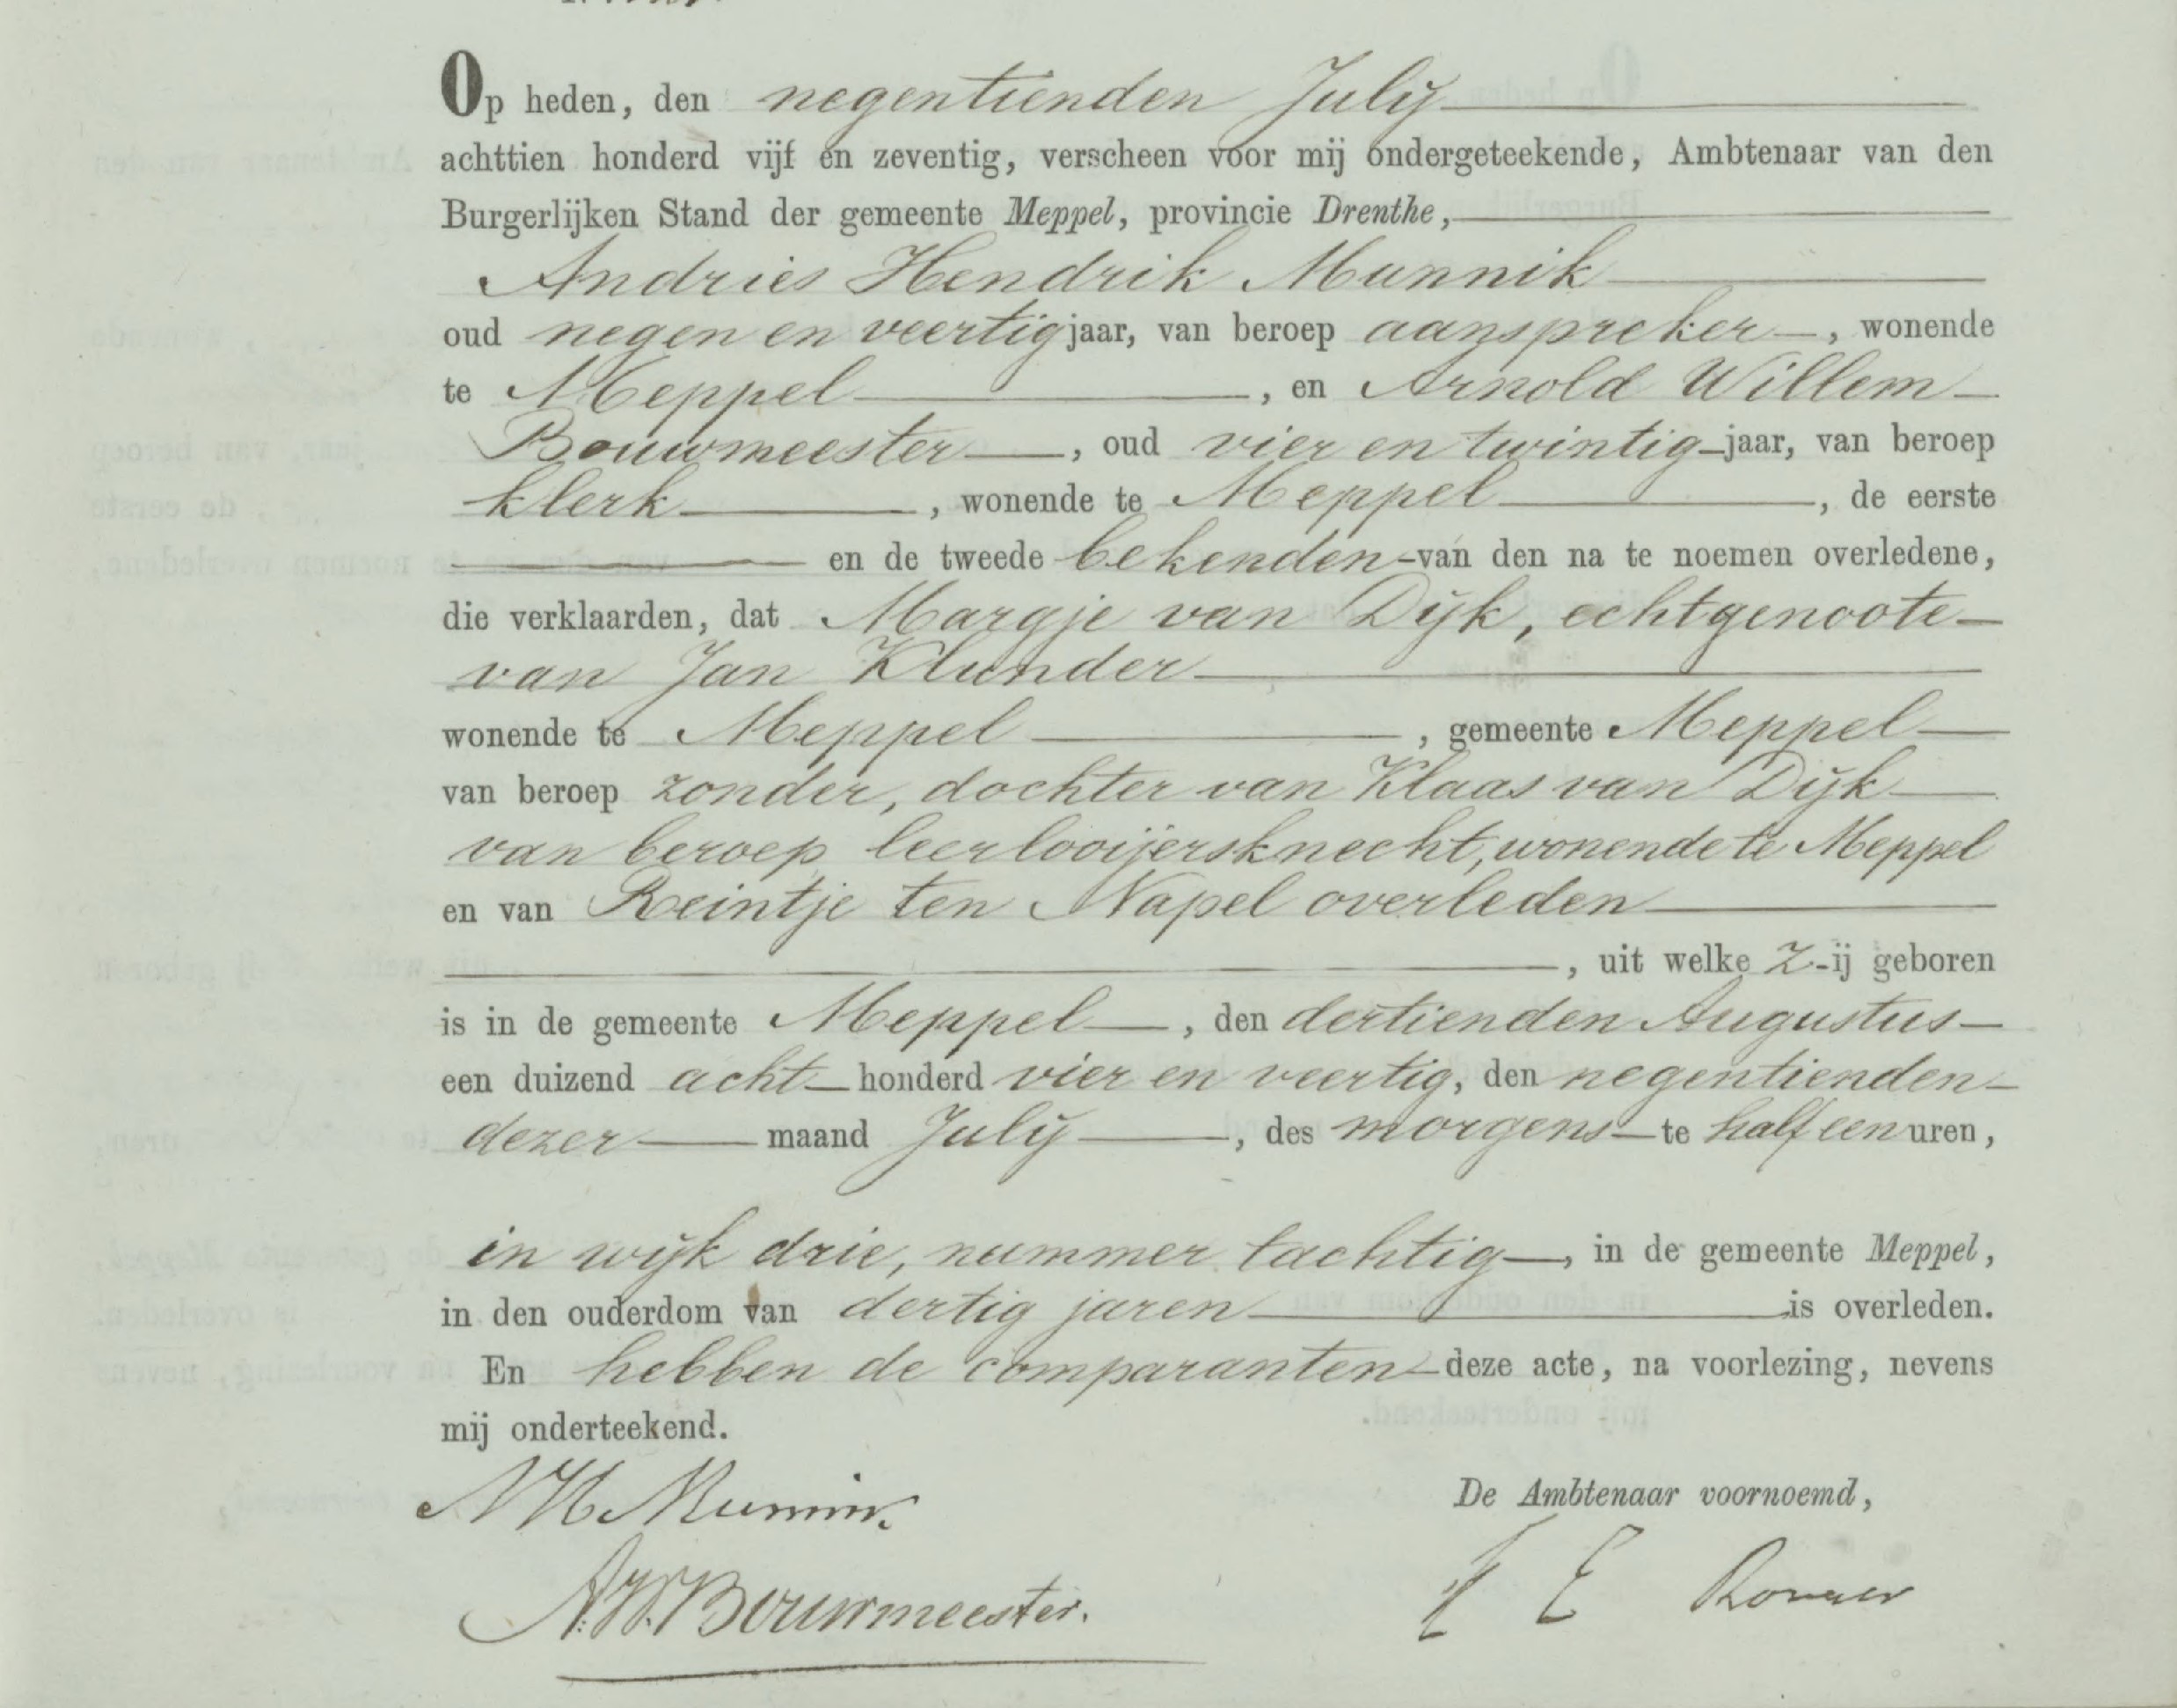 Op heden, den negentienden July
achttien honderd vijf en zeventig, verscheen voor mij ondergeteekende, Ambtenaar van den
Burgerlijken Stand der gemeente Meppel, provincie Drenthe,
Andries Hendrik Munnik
oud negen en veertig jaar, van beroep aanspreker, wonende
te Meppel, en Arnold Willem
Bouwmeester, oud vier en twintig jaar, van beroep
klerk, wonende te Meppel, de eerste
en de tweede bekenden van den na te noemen overledene,
die verklaarden, dat Margje van Dijk, echtgenoote
van Jan Klunder
wonende te Meppel, gemeente Meppel
van beroep zonder, dochter van Klaas van Dijk
van beroep leerlooijersknecht, wonende te Meppel
en van Reintje ten Napel overleden
, uit welke Z-ij geboren
is in de gemeente Meppel, den dertienden Augustus
een duizend acht honderd vier en veertig, den negentienden
dezer maand July, des morgens te half een uren,
in wijk drie, nummer tachtig, in de gemeente Meppel,
in den ouderdom van dertig jaren is overleden.
En hebben de comparanten deze acte, na voorlezing, nevens
mij onderteekend.
De Ambtenaar voornoemd,
AH Munnik
A.W. Bouwmeester.